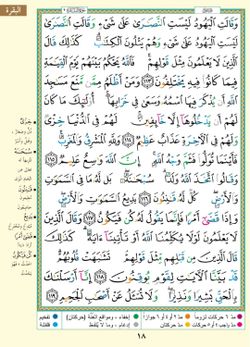 البقرة
وَقَالَتِ ٱلْيَهُودُ لَيْسَتِ ٱلنَّصَٰرَىٰ عَلَىٰ شَىْءٍ وَقَالَتِ ٱلنَّصَٰرَىٰ
لَيْسَتِ ٱلْيَهُودُ عَلَىٰ شَىْءٍ وَهُمْ يَتْلُونَ ٱلْكِتَٰبَ ۗ كَذَٰلِكَ قَالَ
ٱلَّذِينَ لَا يَعْلَمُونَ مِثْلَ قَوْلِهِمْ ۚ فَٱللَّهُ يَحْكُمُ بَيْنَهُمْ يَوْمَ ٱلْقِيَٰمَةِ
فِيمَا كَانُوا۟ فِيهِ يَخْتَلِفُونَ ﴿١١٣﴾ وَمَنْ أَظْلَمُ مِمَّن مَّنَعَ مَسَٰجِدَ
ٱللَّهِ أَن يُذْكَرَ فِيهَا ٱسْمُهُۥ وَسَعَىٰ فِى خَرَابِهَآ ۚ أُو۟لَٰٓئِكَ مَا كَانَ
لَهُمْ أَن يَدْخُلُوهَآ إِلَّا خَآئِفِينَ ۚ لَهُمْ فِى ٱلدُّنْيَا خِزْىٌ وَلَهُمْ
فِى ٱلْءَاخِرَةِ عَذَابٌ عَظِيمٌ ﴿١١٤﴾ وَلِلَّهِ ٱلْمَشْرِقُ وَٱلْمَغْرِبُ ۚ
فَأَيْنَمَا تُوَلُّوا۟ فَثَمَّ وَجْهُ ٱللَّهِ ۚ إِنَّ ٱللَّهَ وَٰسِعٌ عَلِيمٌ ﴿١١٥﴾
وَقَالُوا۟ ٱتَّخَذَ ٱللَّهُ وَلَدًا ۗ سُبْحَٰنَهُۥ ۖ بَل لَّهُۥ مَا فِى ٱلسَّمَٰوَٰتِ
وَٱلْأَرْضِ ۖ كُلٌّ لَّهُۥ قَٰنِتُونَ ﴿١١٦﴾ بَدِيعُ ٱلسَّمَٰوَٰتِ وَٱلْأَرْضِ ۖ
وَإِذَا قَضَىٰٓ أَمْرًا فَإِنَّمَا يَقُولُ لَهُۥ كُن فَيَكُونُ ﴿١١٧﴾ وَقَالَ ٱلَّذِينَ
لَا يَعْلَمُونَ لَوْلَا يُكَلِّمُنَا ٱللَّهُ أَوْ تَأْتِينَآ ءَايَةٌ ۗ كَذَٰلِكَ
قَالَ ٱلَّذِينَ مِن قَبْلِهِم مِّثْلَ قَوْلِهِمْ ۘ تَشَٰبَهَتْ قُلُوبُهُمْ ۗ
قَدْ بَيَّنَّا ٱلْءَايَٰتِ لِقَوْمٍ يُوقِنُونَ ﴿١١٨﴾ إِنَّآ أَرْسَلْنَٰكَ
بِٱلْحَقِّ بَشِيرًا وَنَذِيرًا ۖ وَلَا تُسْـَٔلُ عَنْ أَصْحَٰبِ ٱلْجَحِيمِ ﴿١١٩﴾
١٨